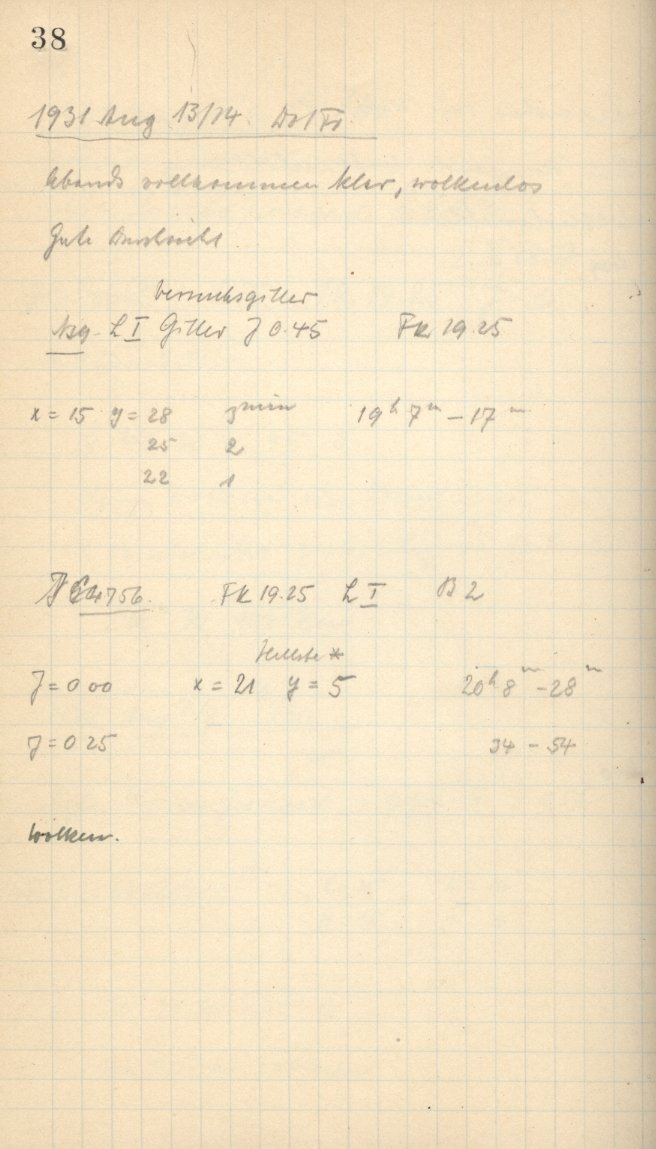 38
1931 Aug 13/14. Do/Fr
Abends vollkommen klar, wolkenlos
Gute Durchsicht
Versuchsgitter
L I Gitter J 0.45 Fk 19.25
x = 15 y = 28 3 min 19 h 7 m - 17 m
25 2
22 1
4756. Fk 19.25 L I B 2
Hellste *
J = 0 00 x = 21 y = 5 20 h 8 m - 28 m
J = 0 25 34 - 54
Wolken.